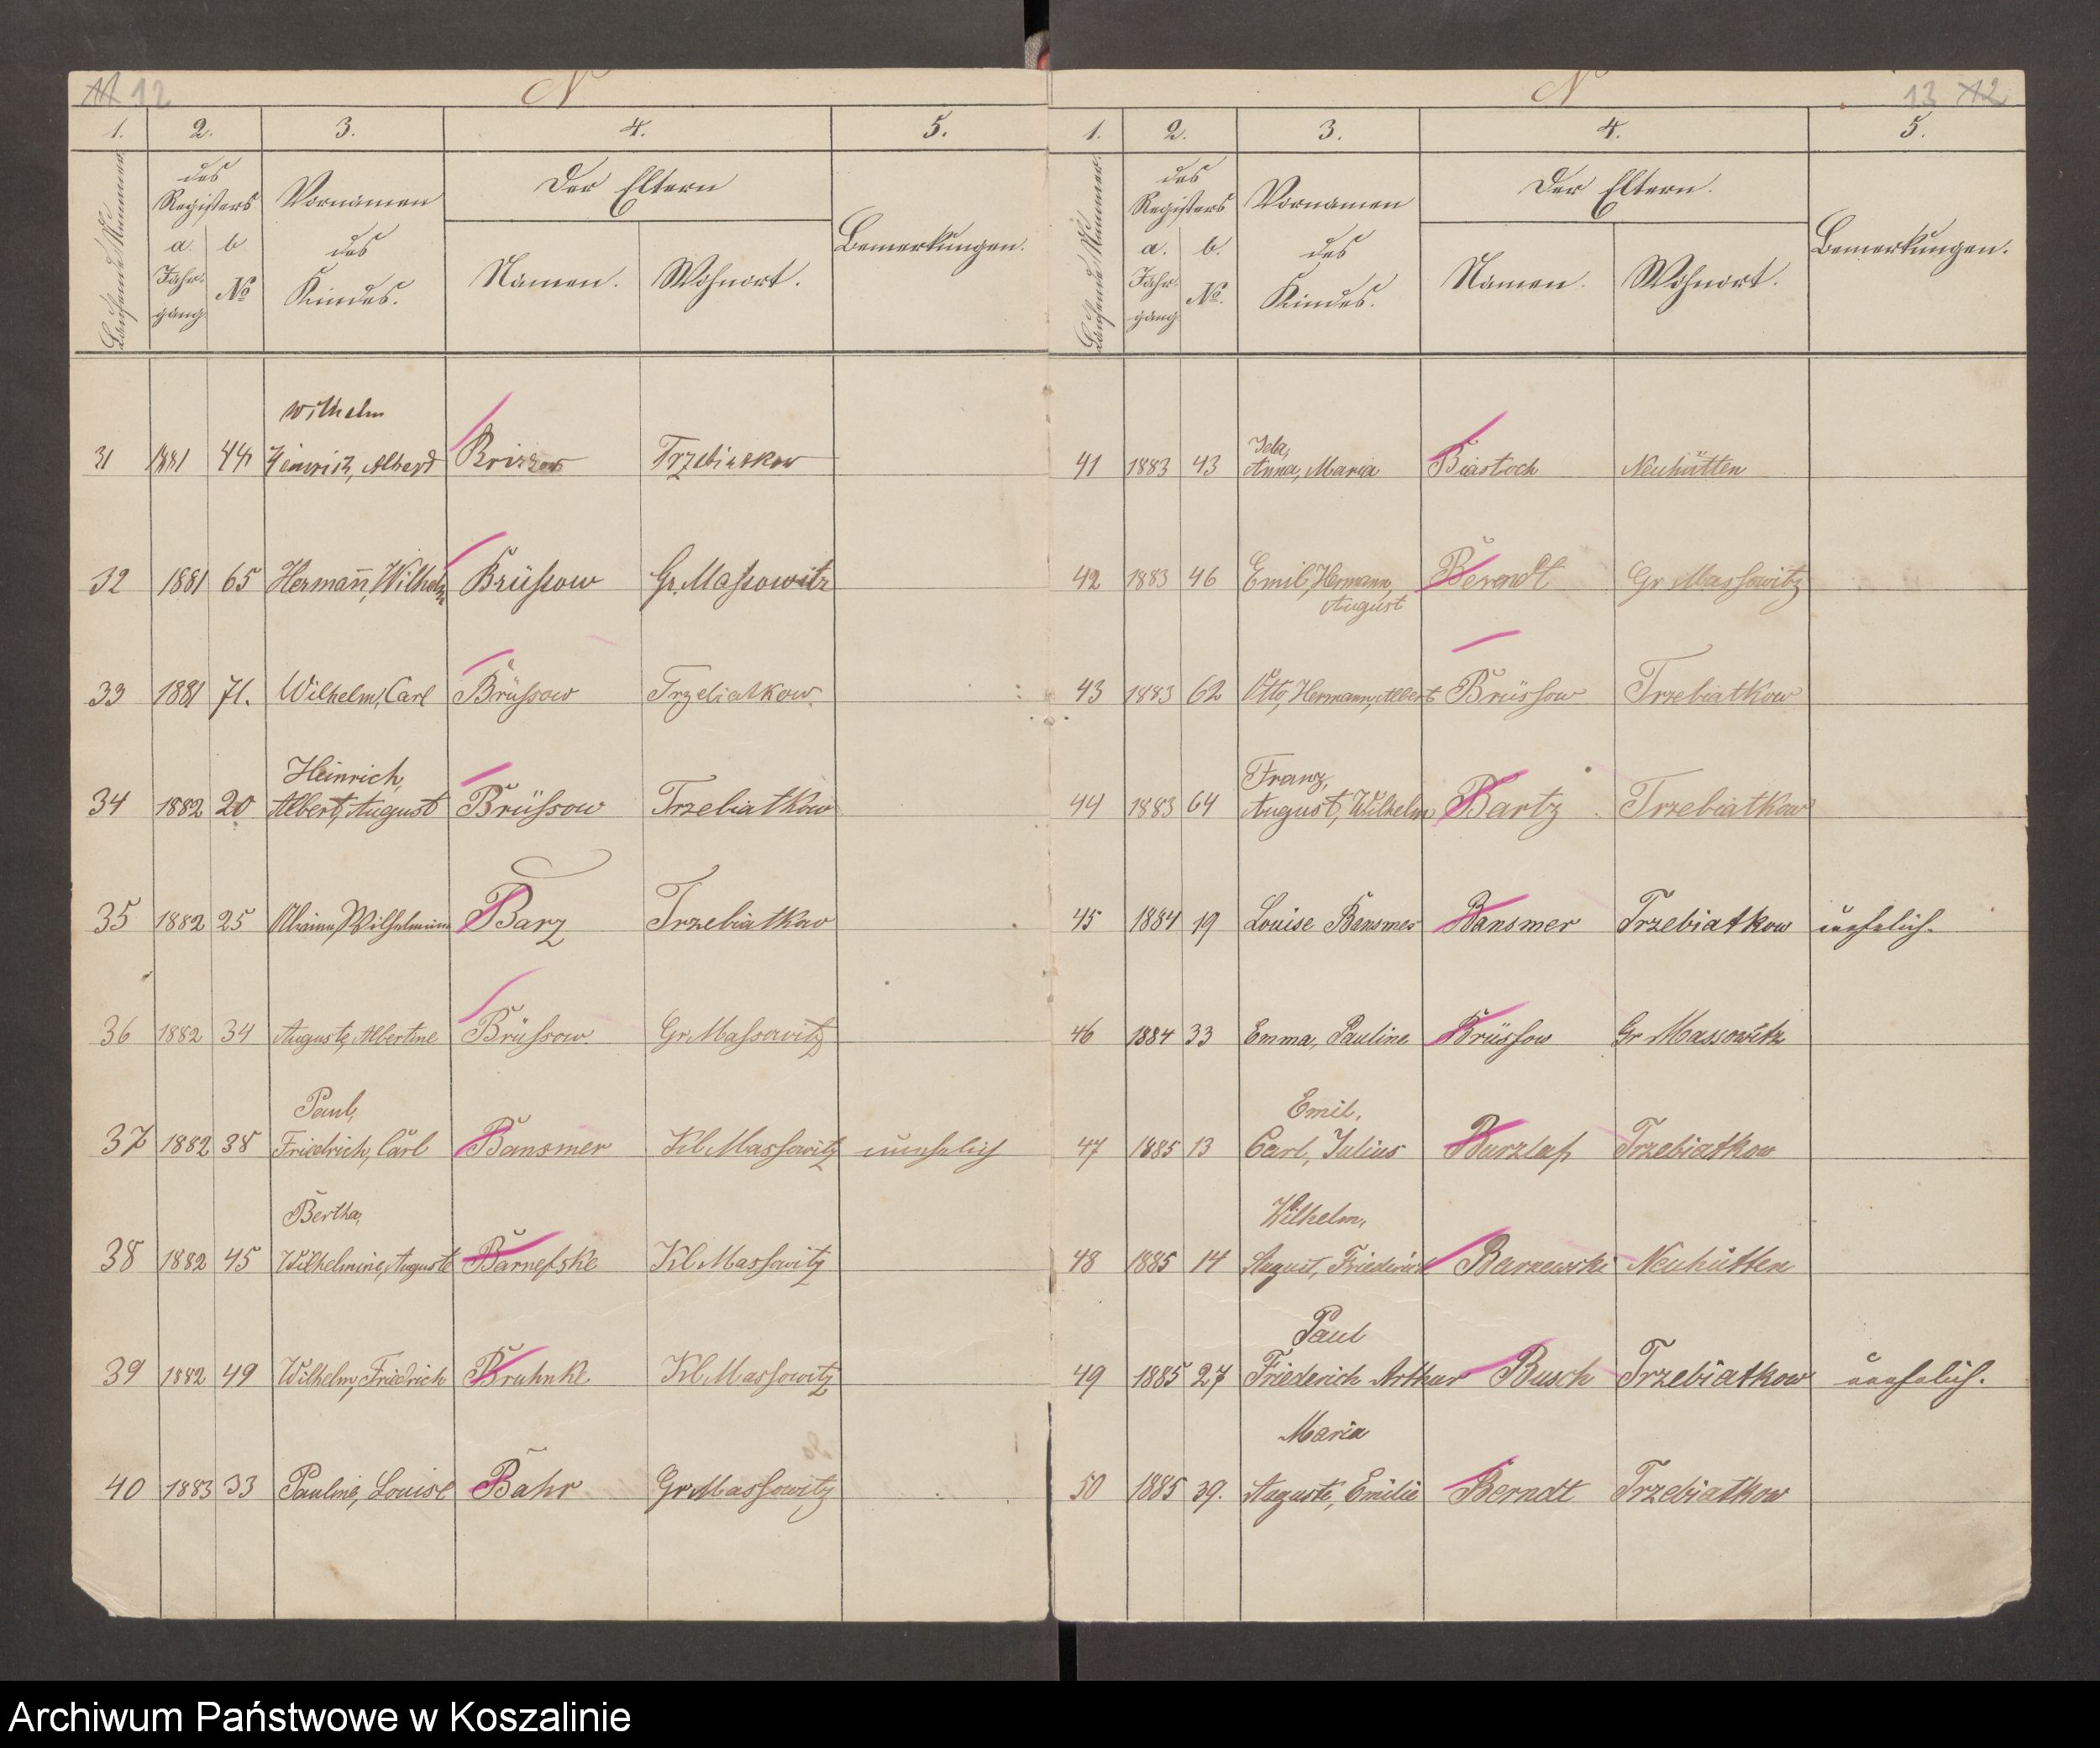 11 12
1. 2. 3. 4. 5.
Laufende Nummer.
des Registers
a. Jahrgang
b. No
Vornamen des Kindes.
Der Eltern
Namen. Wohnort.
Bemerkungen.
Wilhelm
31 1881 44 Heinrich, Albert Trzebiatkow
32 1881 65 Hermann, Wilhelm Brüssow Gr. Massowitz
33 1881 71. Wilhelm, Carl Brüssow Trzebiatkow.
Heinrich,
34 1882 20 Albert, August Brüssow Trzebiatkow
35 1882 25 Wilhelmine Barz Trzebiatkow
36 1882 34 Auguste, Albertine Brüssow Gr Massowitz
Paul,
37 1882 38 Friedrich, Carl Bansmer Kl Massowitz unehelich
Bertha,
38 1882 45 Wilhelmine, Auguste Barnefske Kl Massowitz
39 1882 49 Wilhelm, Friedrich Bruhnke Kl Massowitz
40 1883 33 Pauline, Louise Bahr Gr Massowitz
13 12
1. 2. 3. 4. 5.
Laufende Nummer.
des Registers
a. Jahrgang
b. No.
Vornamen des Kindes.
Der Eltern.
Namen. Wohnort.
Bemerkungen.
Ida,
41 1883 43 Anna, Maria Biastoch Neuhütten
42 1883 46 Emil, Hermann, Berndt Gr Massowitz
August
43 1883 62 Otto, Hermann, Albert Brüssow Trzebiatkow
Franz,
44 1883 64 August, Wilhelm Bartz Trzebiatkow
45 1884 19 Louise Bansmer Bansmer Trzebiatkow unehelich.
46 1884 33 Emma, Pauline Brüssow Gr Massowitz
Emil,
47 1885 13 Carl, Julius Burzlaff Trzebiatkow
Wilhelm,
48 1885 14 August, Friederich Barzewski Neuhütten
Paul
49 1885 27 Friederich Arthur Busch Trzebiatkow unehelich.
Maria
50 1885 39. Auguste, Emilie Berndt Trzebiatkow
Archiwum Państwowe w Koszalinie